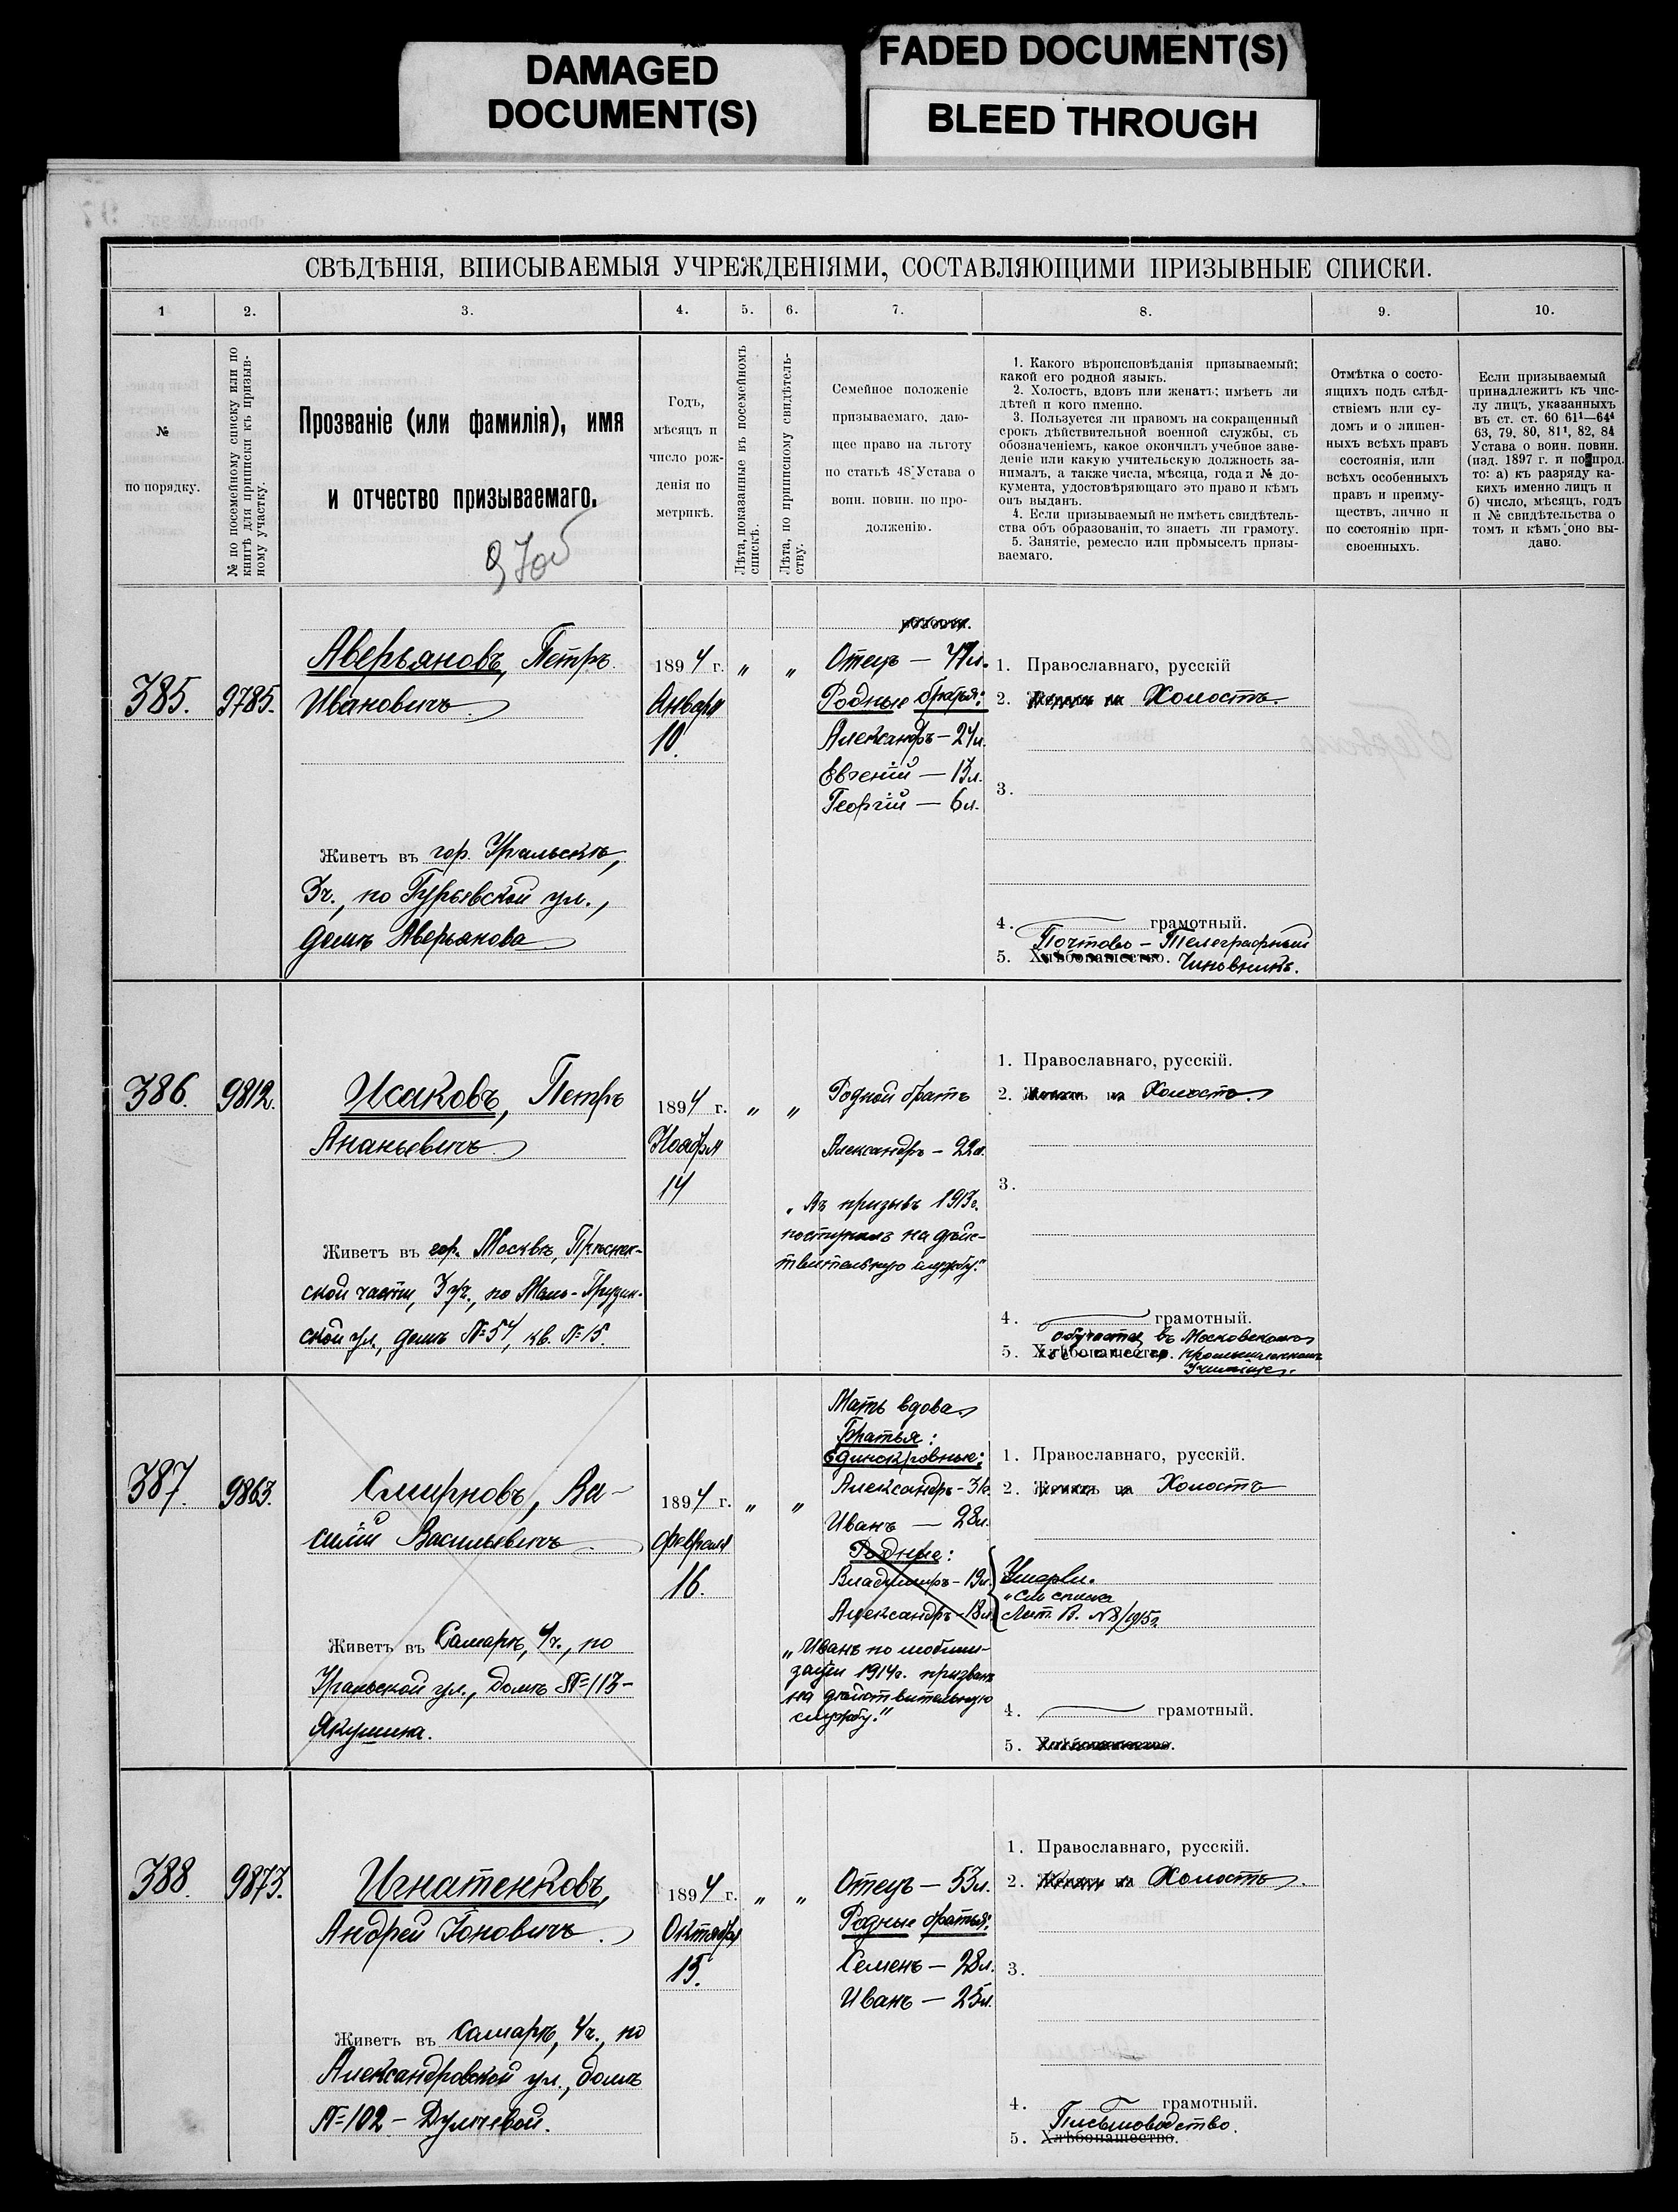 DAMAGED
DOCUMENT(S)
FADED DOCUMENT(S)
BLEED THROUGH
СВѢДѢНІЯ, ВПИСЫВАЕМЫЯ УЧРЕЖДЕНІЯМИ, СОСТАВЛЯЮЩИМИ ПРИЗЫВНЫЕ СПИСКИ.
1 2. 3. 4. 5. 6. 7. 8. 9. 10.
№
по порядку.
№ по посемейному списку или по
книгѣ для приписки къ призыв-
ному участку.
Прозваніе (или фамилія), имя
и отчество призываемаго.
97об
Годъ,
мѣсяцъ и
число рож-
денія по
метрикѣ.
Лѣта, показанные въ посемейномъ
спискѣ.
Лѣта, по приписному свидѣтель-
ству.
Семейное положеніе
призываемаго, даю-
щее право на льготу
по статьѣ 48 Устава о
воин. повин. по про-
долженію.
1. Какого вѣроисповѣданія призываемый;
какой его родной языкъ.
2. Холостъ, вдовъ или женатъ; имѣетъ ли
дѣтей и кого именно.
3. Пользуется ли правомъ на сокращенный
срокъ дѣйствительной военной службы, съ
обозначеніемъ, какое окончилъ учебное заве-
деніе или какую учительскую должность за-
нималъ, а также числа, мѣсяца, года и № до-
кумента, удостовѣряющаго это право и кѣмъ
онъ выданъ.
4. Если призываемый не имѣетъ свидѣтель-
ства объ образованіи, то знаетъ ли грамоту.
5. Занятіе, ремесло или промыселъ призы-
ваемаго.
Отмѣтка о состо-
ящихъ подъ слѣд-
ствіемъ или су-
домъ и о лишен-
ныхъ всѣхъ правъ
состоянія, или
всѣхъ особенныхъ
правъ и преиму-
ществъ, лично и
по состоянію при-
своенныхъ.
Если призываемый
принадлежитъ къ чис-
лу лицъ, указанныхъ
въ ст. ст. 60 61¹—64⁴
63, 79, 80, 81¹, 82, 84
Устава о воин. повин.
(изд. 1897 г. и по прод.
то: а) къ разряду ка-
кихъ именно лицъ и
б) число, мѣсяцъ, годъ
и № свидѣтельства о
томъ и кѣмъ оно вы-
дано.
385. 9785.
Аверьяновъ, Петръ
Ивановичъ
Живетъ въ гор. Уральскѣ,
3ч., по Гурьевской ул.,
домъ Аверьянова
1894 г.
Января
10.
" "
Отецъ — 47л.
Родные братья:
Александръ — 24л.
Евгеній — 13л.
Георгій — 6л.
1. Православнаго, русскій
2. Холостъ.
3.
4. грамотный.
Почтово-Телеграфный
5. Хлѣбопашество. Чиновникъ.
386. 9812.
Исаковъ, Петръ
Ананьевичъ
Живетъ въ гор. Москвѣ, Прѣснен-
ской части, 3 уч., по Мало-Грузин-
ской ул., домъ №54, кв. №15.
1894 г.
Ноября
14
" "
Родной братъ
Александръ — 22л.
"Въ призывъ 1913г.
поступилъ на дѣйс-
твительную службу."
1. Православнаго, русскій.
2. Холостъ.
3.
4. грамотный.
обучается въ Московскомъ
5. Хлѣбопашество. промышленномъ
Училищѣ.
387. 9863.
Смирновъ, Ва-
силій Васильевичъ
Живетъ въ Самарѣ, 4ч., по
Уральской ул., домъ №113-
Якушина.
1894 г.
Февраля
16.
" "
Мать вдова
Братья:
Единокровные:
Александръ — 31л.
Иванъ — 28л.
Родные:
Владиміръ — 19л.
Александръ — 18л.
"Иванъ по мобили-
заціи 1914г. призванъ
на дѣйствительную
службу."
1. Православнаго, русскій.
2. Холостъ
Умерли.
"см списка
Лит. В. №8/1915г.
4. грамотный.
5. Хлѣбопашество.
388. 9873.
Игнатенковъ,
Андрей Іоновичъ
Живетъ въ Самарѣ, 4ч., по
Александровской ул., домъ
№102 —
1894 г.
Октября
15.
" "
Отецъ — 53л.
Родные братья:
Семенъ — 28л.
Иванъ — 25л.
1. Православнаго, русскій.
2. Холостъ
3.
4. грамотный.
Письмоводство.
5. Хлѣбопашество.